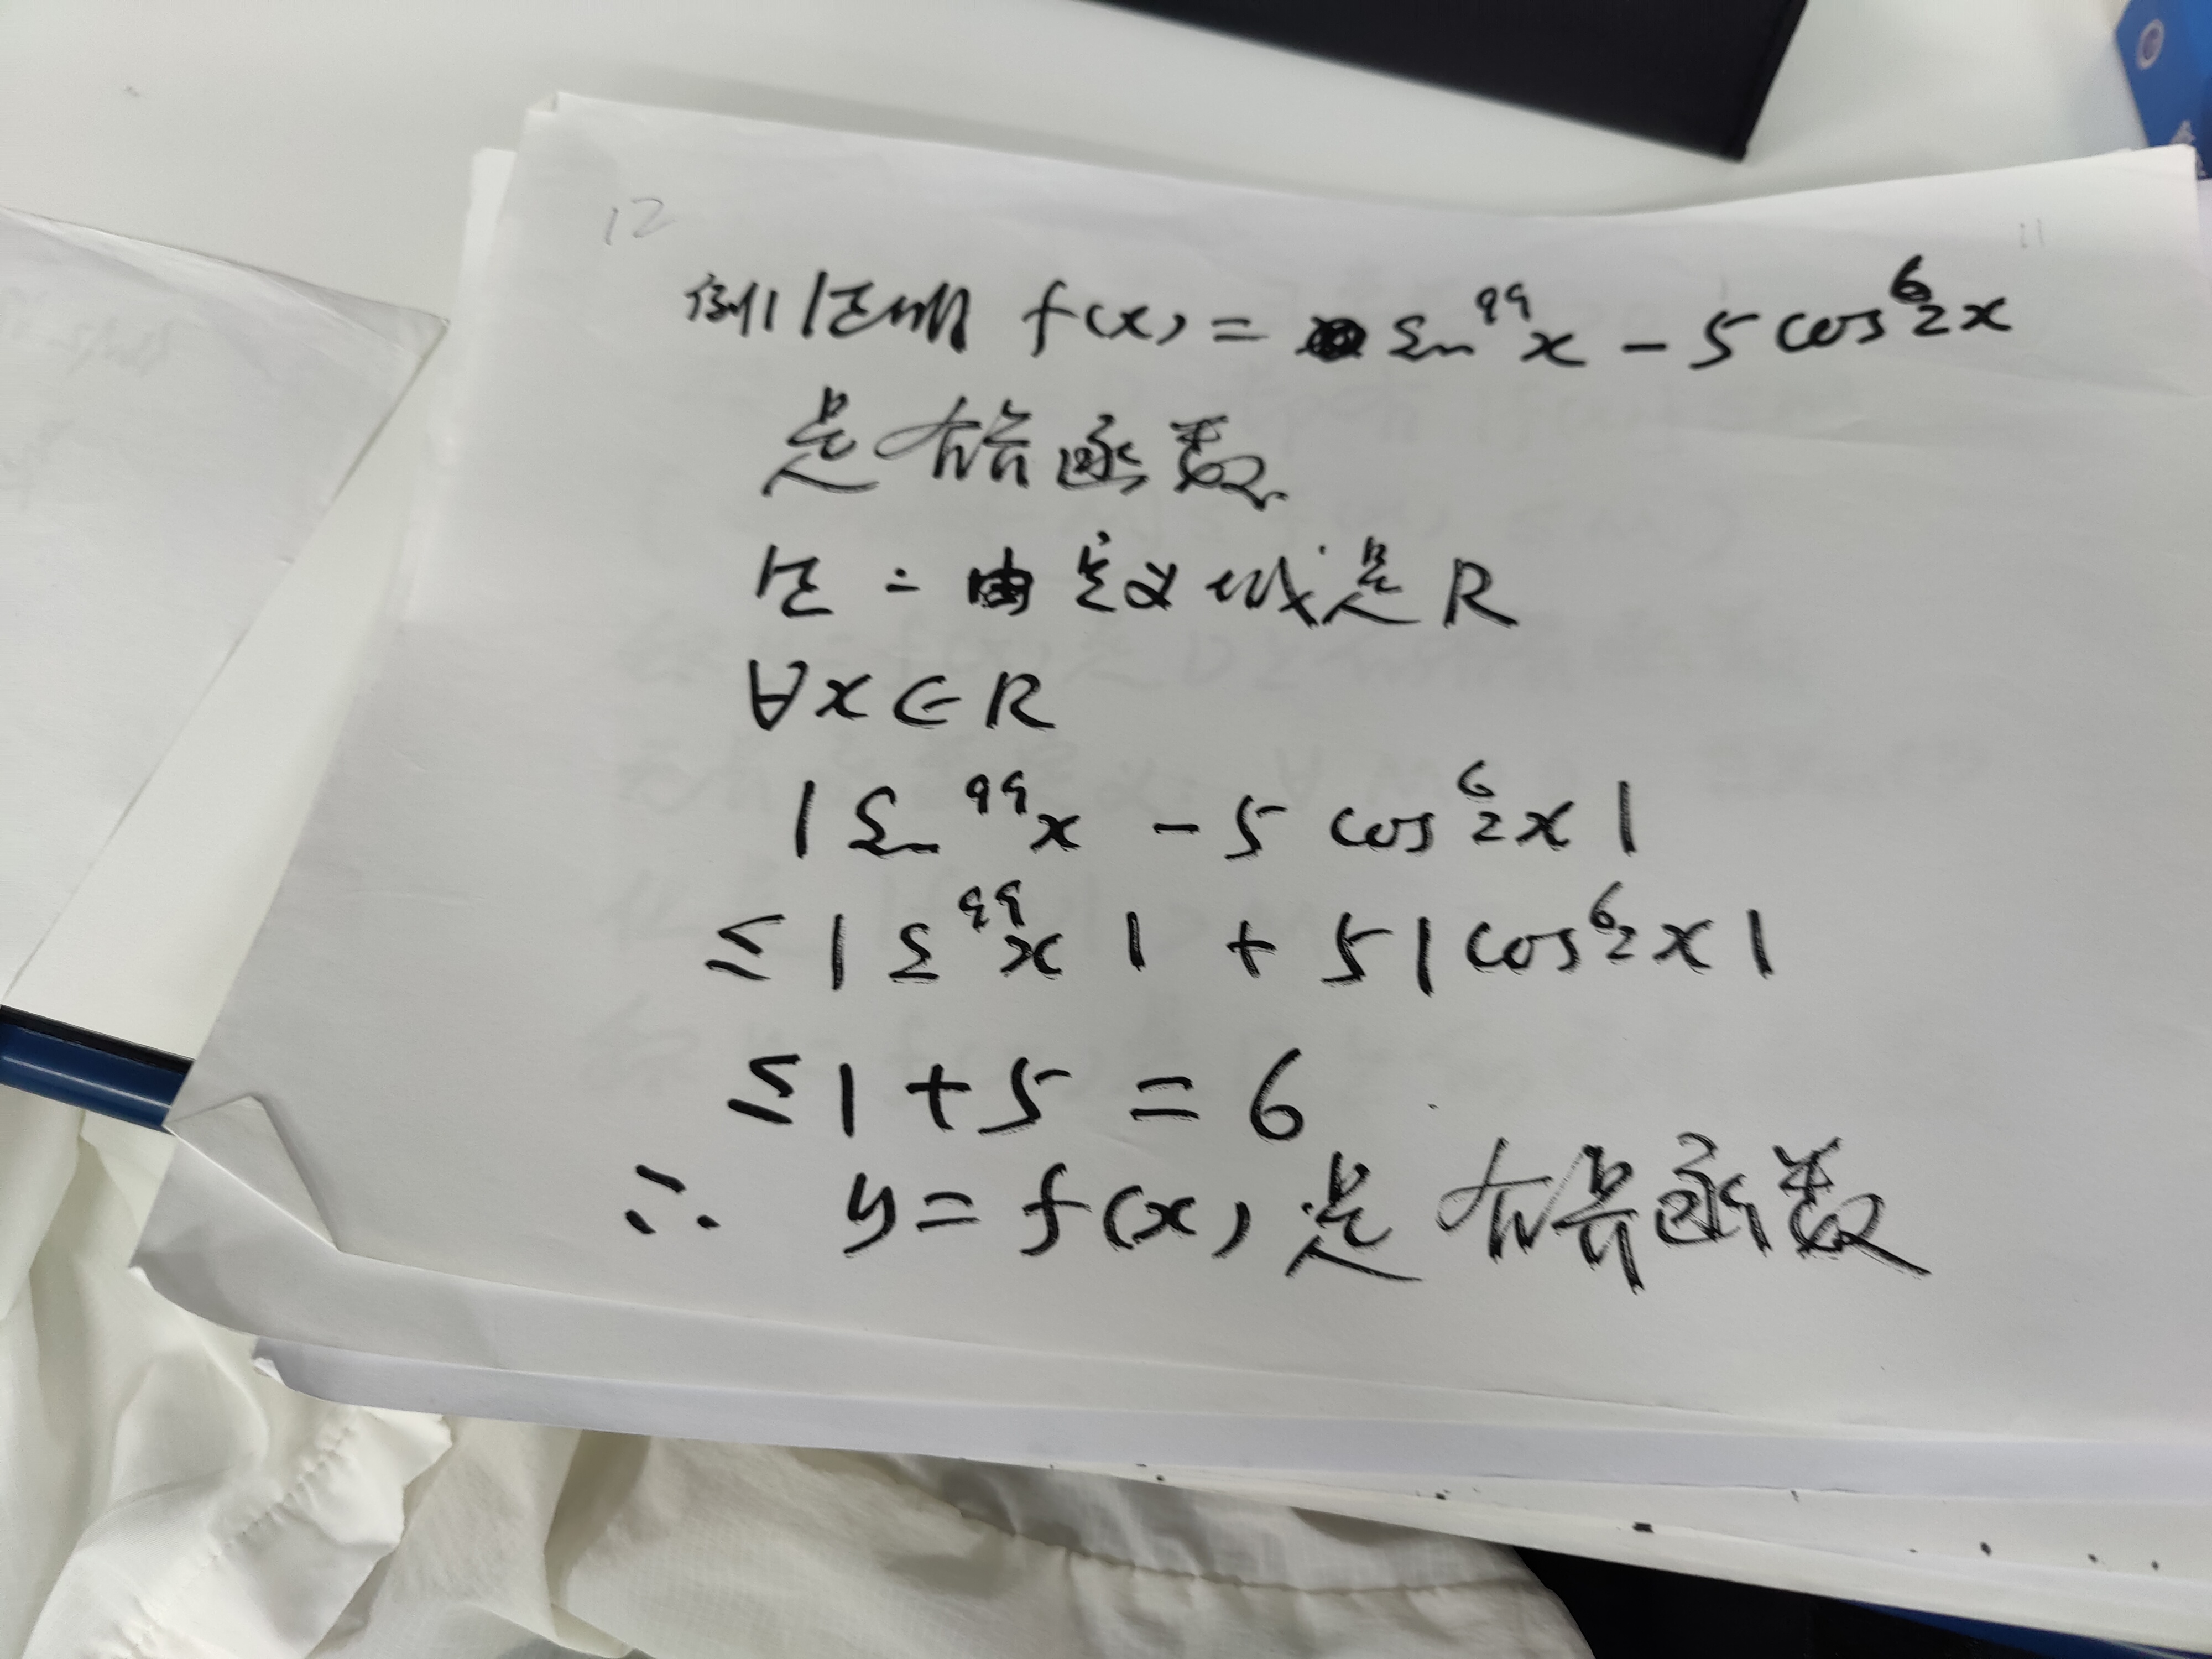 12
例1 证明 f(x) = sin⁹⁹x - 5cos⁶2x
是有界函数.
证: 由定义域是R
∀x∈R
|sin⁹⁹x - 5cos⁶2x|
≤|s⁹⁹x| + 5|cos⁶2x|
≤1+5=6
∴ y=f(x)是有界函数